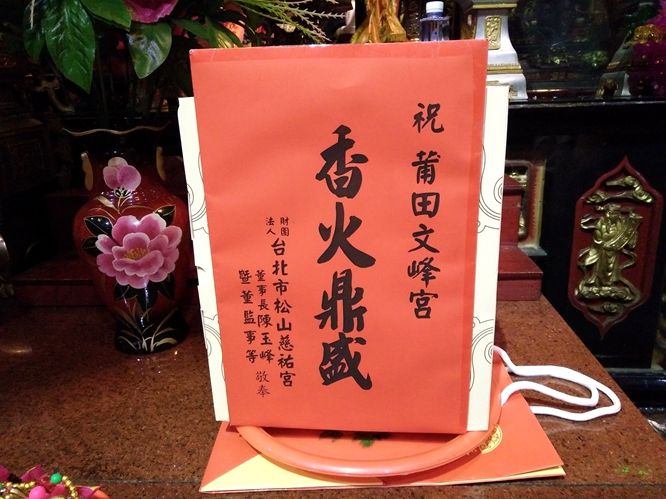 祝 莆田文峰宮
香火鼎盛
財團
法人
台北市松山慈祐宮
董事長陳玉峰
暨董監事等
敬奉